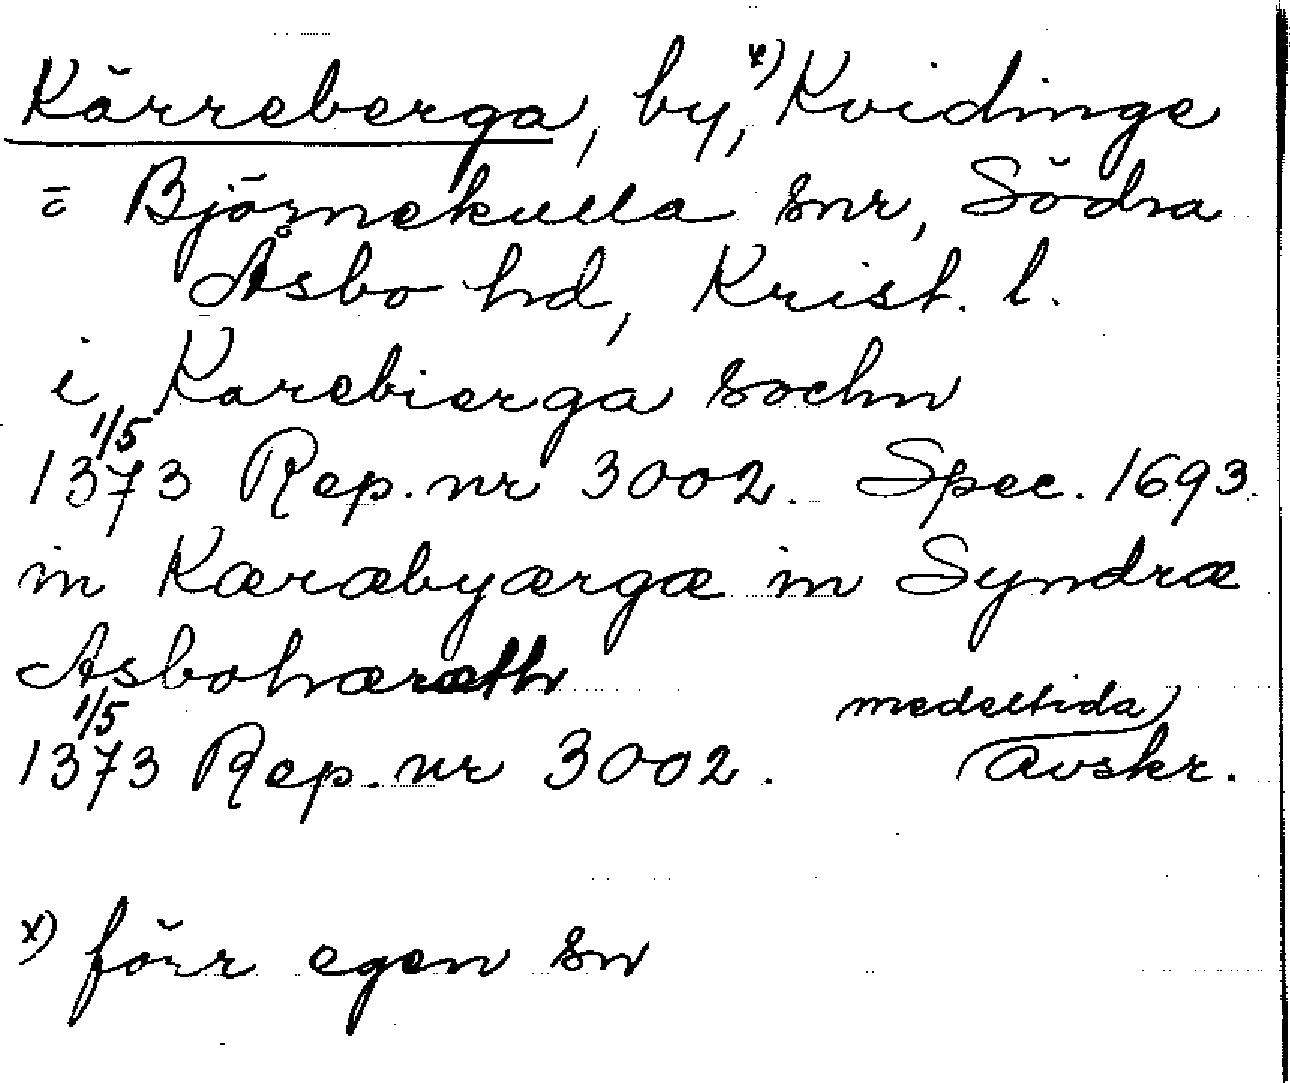 Kärreberga, by, x) Kvidinge
= Björnekulla snr, Södra
Åsbo hd, Krist. l.
i Karebierga sochn
1/5
1373 Rep. nr 3002. Spec. 1693.
in Kæræbyærgæ in Syndræ
Asbohæræth
1/5 medeltida
1373 Rep. nr 3002. avskr.
x) förr egen sn